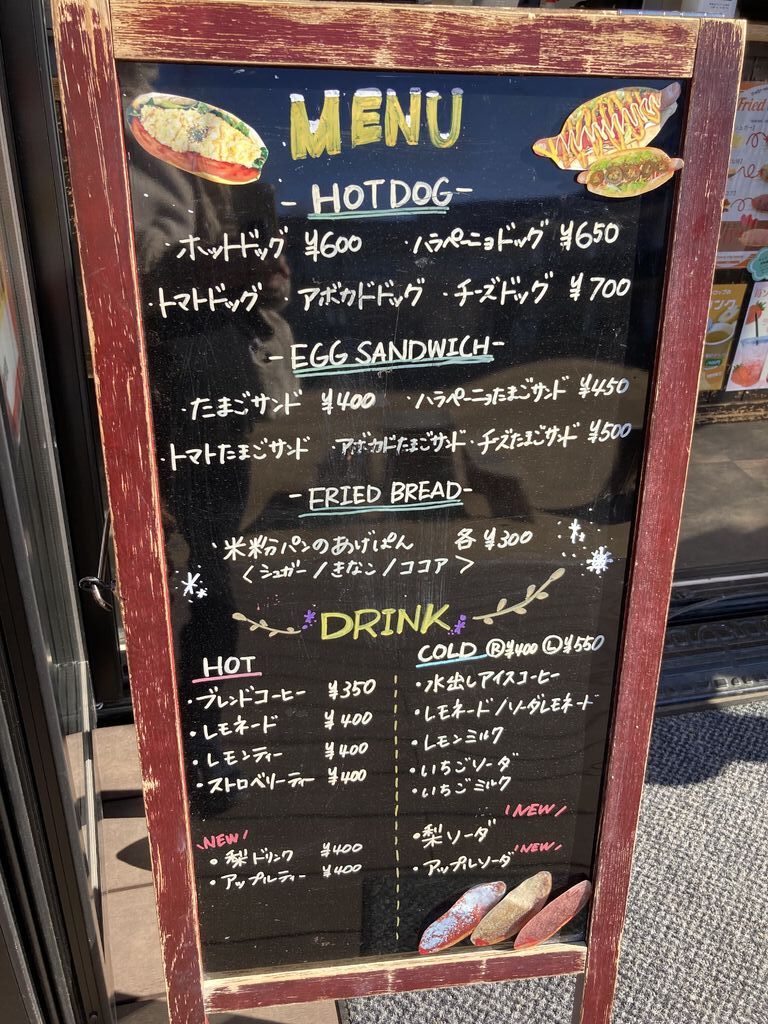 MENU
- HOTDOG -
・ホットドッグ ¥600 ・ハラペーニョドッグ ¥650
・トマトドッグ ・アボカドドッグ ・チーズドッグ ¥700
- EGG SANDWICH -
・たまごサンド ¥400 ・ハラペーニョたまごサンド ¥450
・トマトたまごサンド ・アボカドたまごサンド ・チーズたまごサンド ¥500
- FRIED BREAD -
・米粉パンのあげぱん 各¥300
<シュガー/きなこ/ココア>
DRINK
HOT
・ブレンドコーヒー ¥350
・レモネード ¥400
・レモンティー ¥400
・ストロベリーティー ¥400
\NEW/
・梨ドリンク ¥400
・アップルティー ¥400
COLD Ⓡ¥400 Ⓛ¥550
・水出しアイスコーヒー
・レモネード/ソーダレモネード
・レモンミルク
・いちごソーダ
・いちごミルク
\NEW/
・梨ソーダ
・アップルソーダ \NEW/
Fried